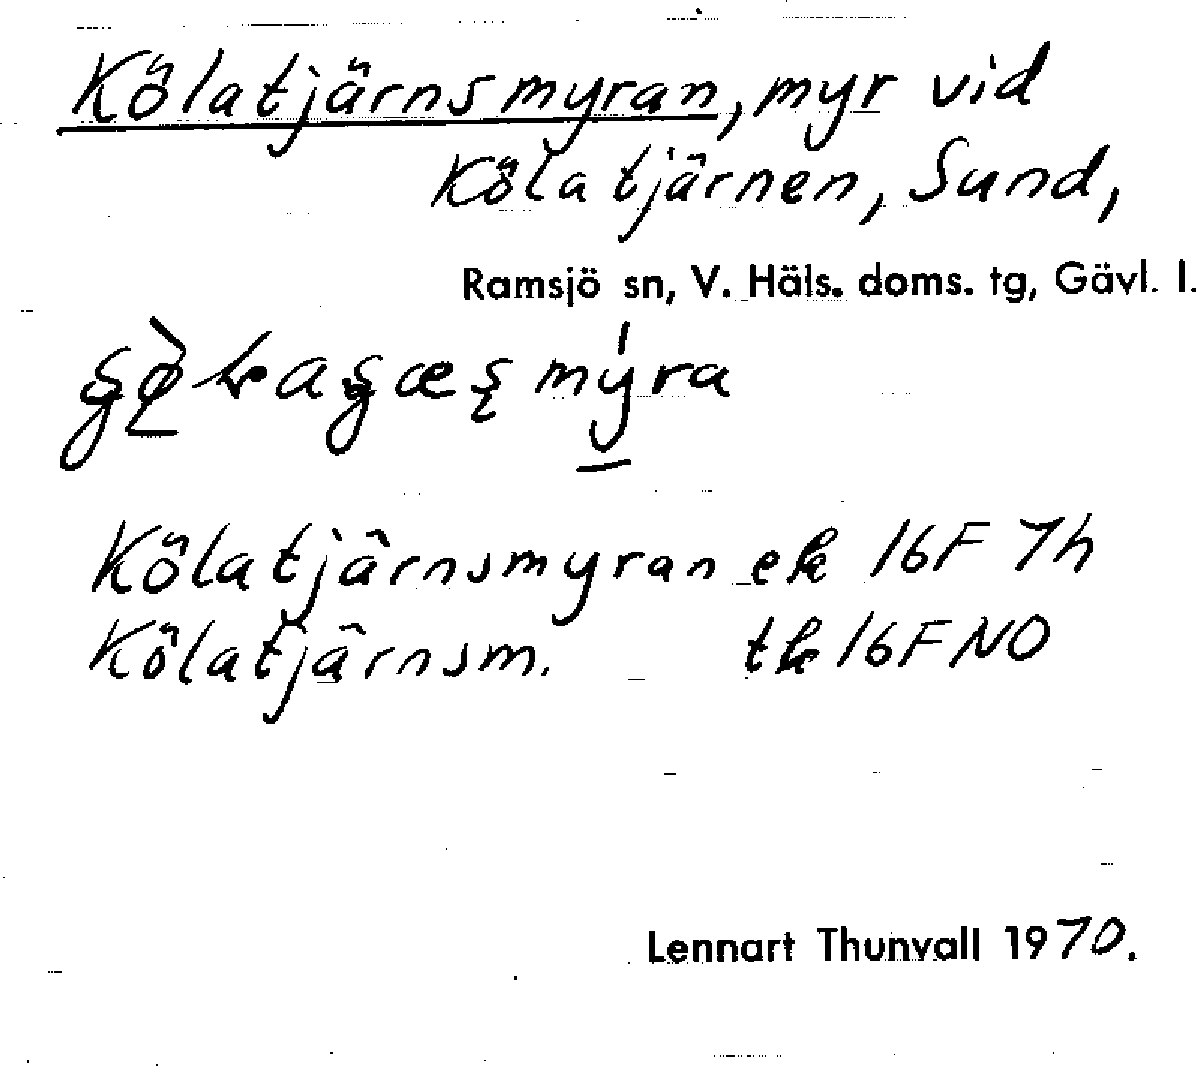 Kölatjärnsmyran, myr vid
Kölatjärnen, Sund,
Ramsjö sn, V. Häls. doms. tg, Gävl. l.
Kölatjärnsmyran ek 16F 7h
Kölatjärnsm. tk 16F NO
Lennart Thunvall 1970.